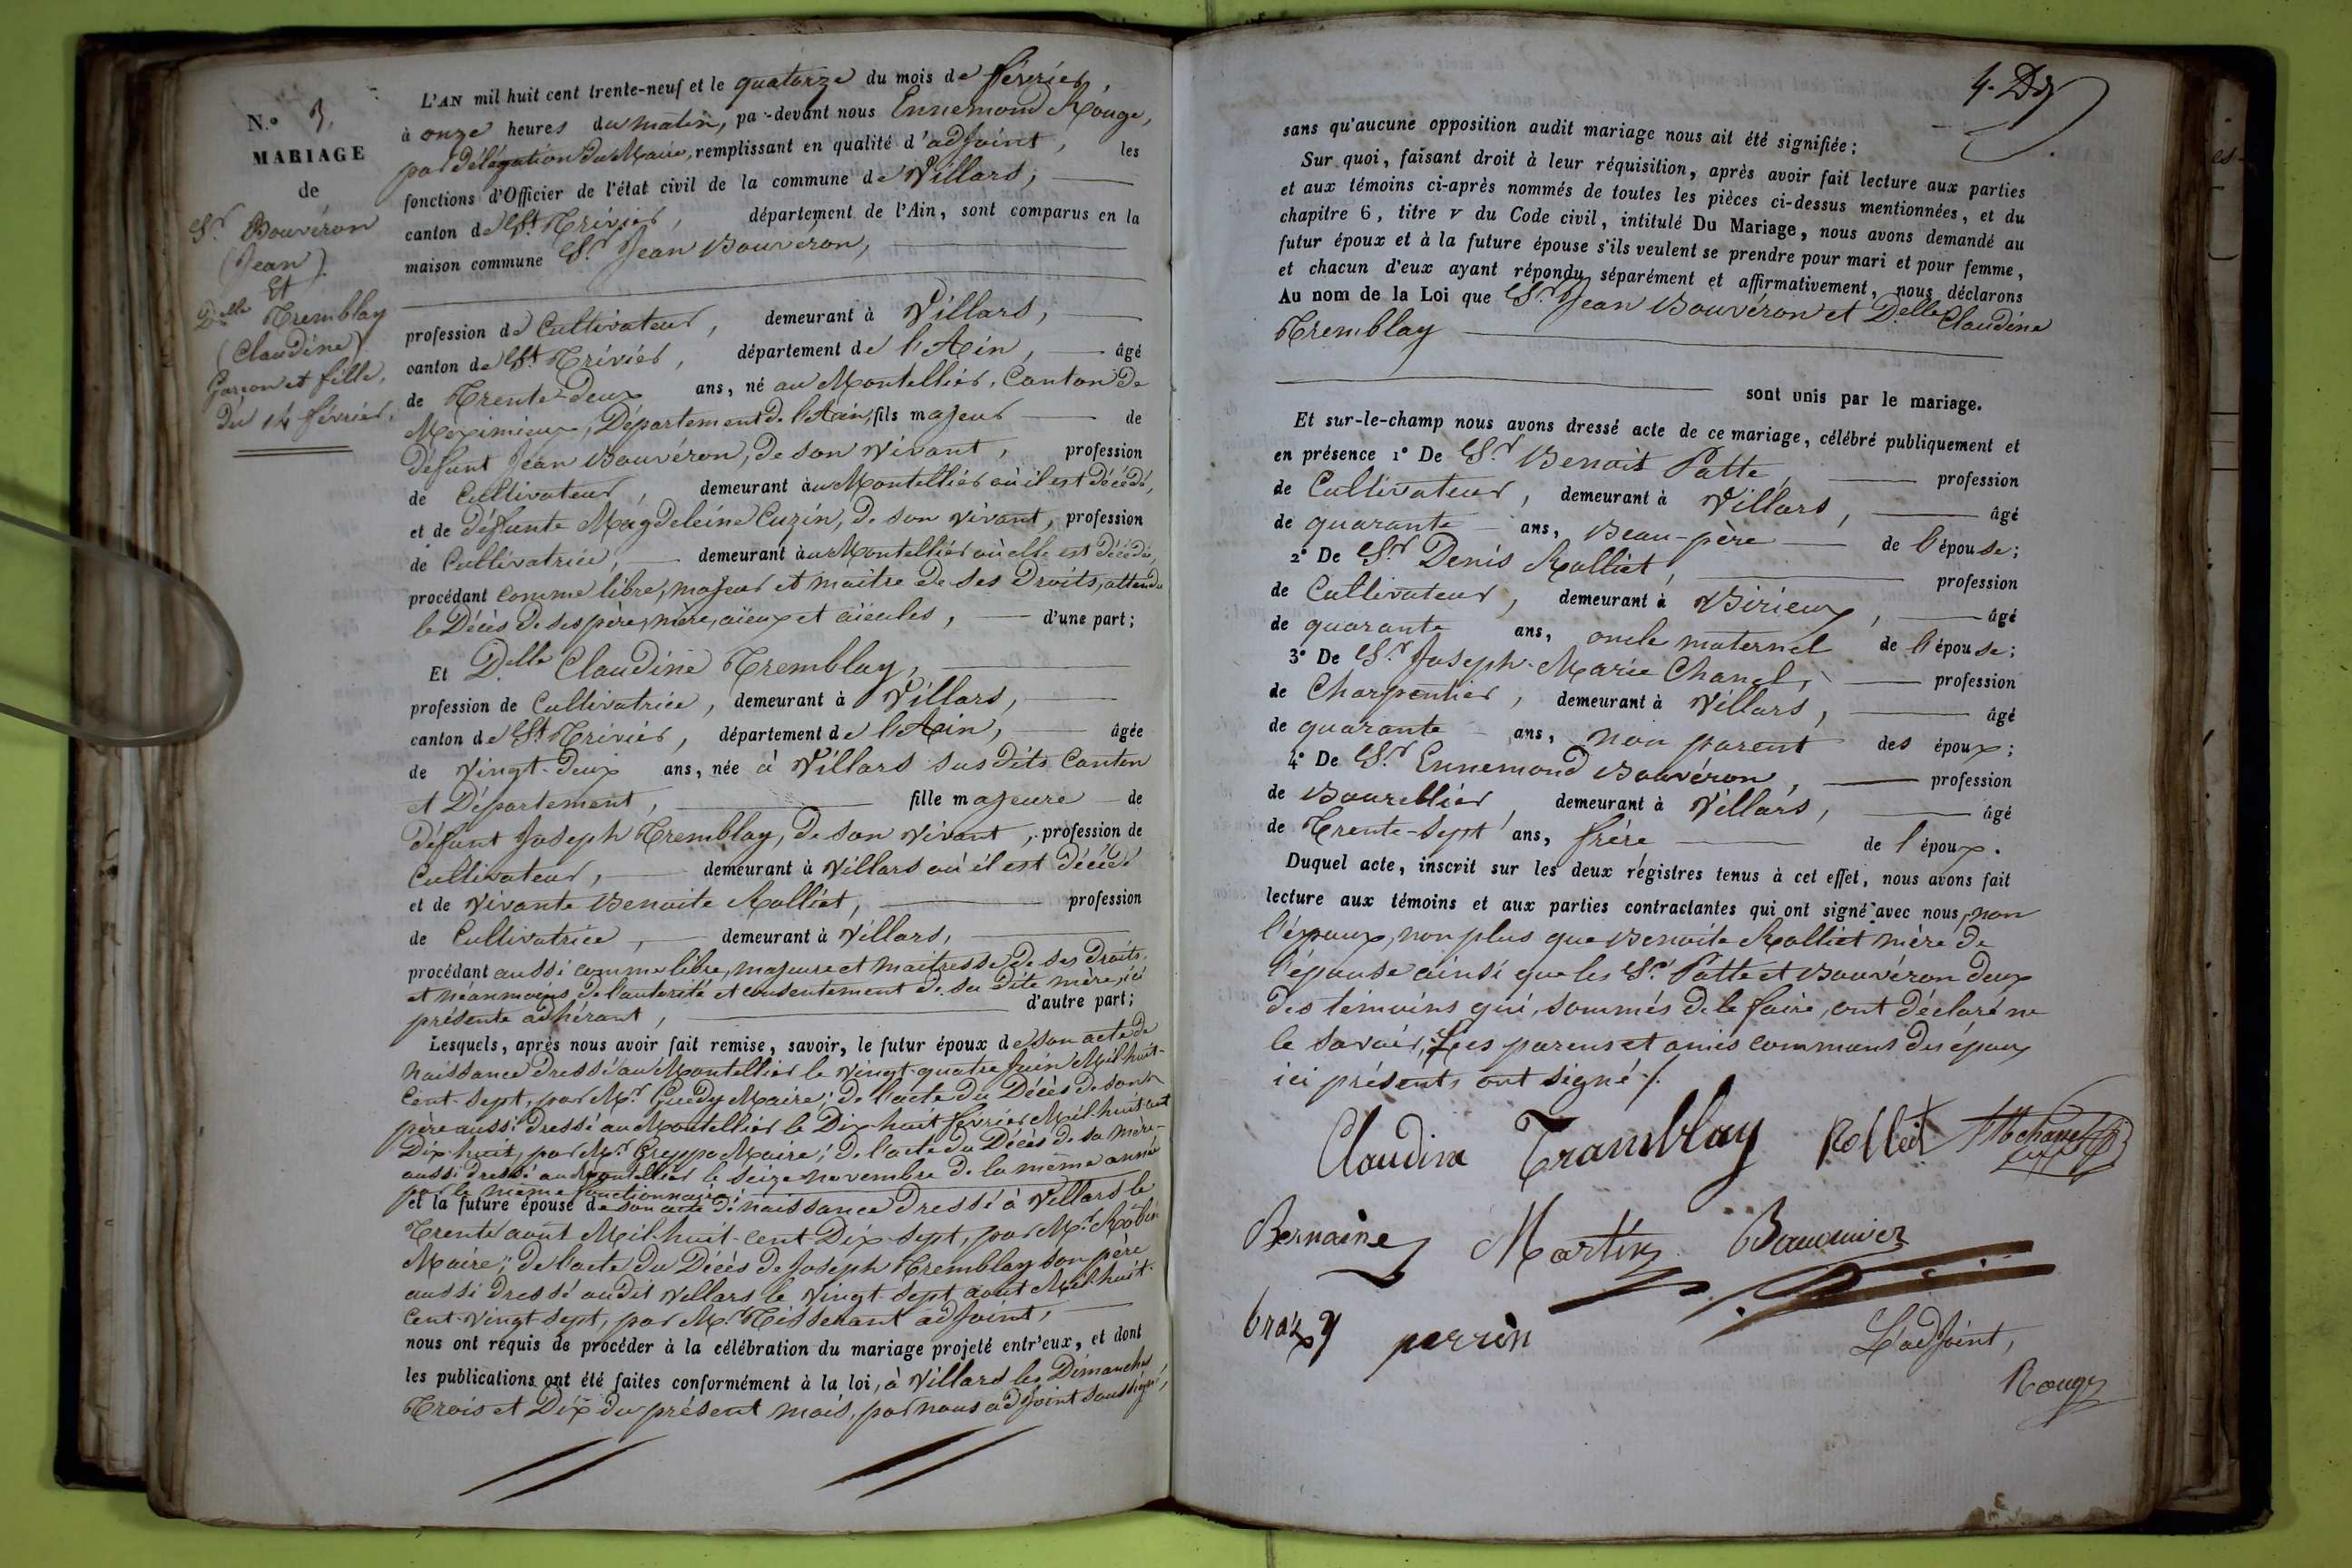 N.º 3.
MARIAGE
de
Sr. Bouvéron
(Jean)
Et
Delle Tremblay
(Claudine)
Garçon et fille,
du 14 février.
L'AN mil huit cent trente-neuf et le quatorze du mois de février
à onze heures du matin, pa-devant nous Ennemond Rouge,
par délégation du Maire, remplissant en qualité d'adjoint, les
fonctions d'Officier de l'état civil de la commune de Villars,
canton de St. Trivier, département de l'Ain, sont comparus en la
maison commune Sr. Jean Bouvéron,
profession de Cultivateur, demeurant à Villars,
canton de St. Trivier, département de l'Ain, âgé
de Trente-Deux ans, né au Montellier, Canton de
Meximieux, Département de l'Ain, fils majeur de
défunt Jean Bouvéron, de son vivant, profession
de Cultivateur, demeurant au Montellier où il est décédé,
et de défunte Magdeleine Cuzin, de son vivant, profession
de Cultivatrice, demeurant au Montellier où elle est décédée,
procédant comme libre, majeur et maître de ses droits, attendu
le Décès de ses père, mère, aïeux et aïeules, d'une part;
Et Delle Claudine Tremblay,
profession de Cultivatrice, demeurant à Villars,
canton de St. Trivier, département de l'Ain, âgée
de vingt-deux ans, née à Villars susdits Canton
et Département, fille majeure de
défunt Joseph Tremblay, de son vivant, profession de
Cultivateur, demeurant à Villars où il est décédé
et de vivante Benoite Rolliet, profession
de Cultivatrice, demeurant à Villars,
procédant aussi comme libre, majeure et maitresse de ses droits,
et néanmoins de l'autorité et consentement de sa dite mère, ici
présente adhérant, d'autre part;
Lesquels, après nous avoir fait remise, savoir, le futur époux de son acte de
naissance dressé au Montellier le vingt-quatre juin Mil-huit-
cent-sept, par Mr. Guedy Maire; de l'acte du Décès de son
père aussi dressé au Montellier le Dix-huit février Mil-huit-cent
Dix-huit, par Mr. Greppo Maire; de l'acte du Décès de sa mère
aussi dressé au Montellier le seize novembre de la même année
par le même fonctionnaire;
et la future épouse de son acte de naissance dressé à Villars le
Trente août Mil-huit-cent Dix-sept, par Mr. Robin
Maire; de l'acte du Décès de Joseph Tremblay son père
aussi dressé audit Villars le vingt-sept août Mil-huit-
cent-vingt-sept, par Mr. Tissenant adjoint,
nous ont requis de procéder à la célébration du mariage projeté entr'eux, et dont
les publications ont été faites conformément à la loi, à Villars les Dimanches
Trois et Dix du présent mois, par nous adjoint soussigné,
sans qu'aucune opposition audit mariage nous ait été signifiée;
Sur quoi, faisant droit à leur réquisition, après avoir fait lecture aux parties
et aux témoins ci-après nommés de toutes les pièces ci-dessus mentionnées, et du
chapitre 6, titre V du Code civil, intitulé Du Mariage, nous avons demandé au
futur époux et à la future épouse s'ils veulent se prendre pour mari et pour femme,
et chacun d'eux ayant répondu séparément et affirmativement, nous déclarons
Au nom de la Loi que Sr. Jean Bouvéron et Delle Claudine
Tremblay
sont unis par le mariage.
Et sur-le-champ nous avons dressé acte de ce mariage, célébré publiquement et
en présence 1º De Sr. Benoit Patte, profession
de Cultivateur, demeurant à Villars, âgé
de quarante ans, Beau-père de l'épouse;
2º De Sr. Denis Rolliet, profession
de Cultivateur, demeurant à Birieux, âgé
de quarante ans, oncle maternel de l'épouse;
3º De Sr. Joseph-Marie Chanel, profession
de Charpentier, demeurant à Villars, âgé
de quarante ans, non parent des époux;
4º De Sr. Ennemond Bouvéron, profession
de Bourellier, demeurant à Villars, âgé
de Trente-sept ans, frère de l'époux.
Duquel acte, inscrit sur les deux régistres tenus à cet effet, nous avons fait
lecture aux témoins et aux parties contractantes qui ont signé avec nous, non
l'époux, non plus que Benoite Rolliet mère de
l'épouse ainsi que les Srs. Patte et Bouvéron deux
des témoins qui, sommés de le faire, ont déclaré ne
le savoir, Les parens et amis communs des époux
ici présents ont signé ./.
Claudine Tramblay Rolliet JM chanel
Bernaine Martin Bauvuier
braz y perrin
L'adjoint,
Rouge